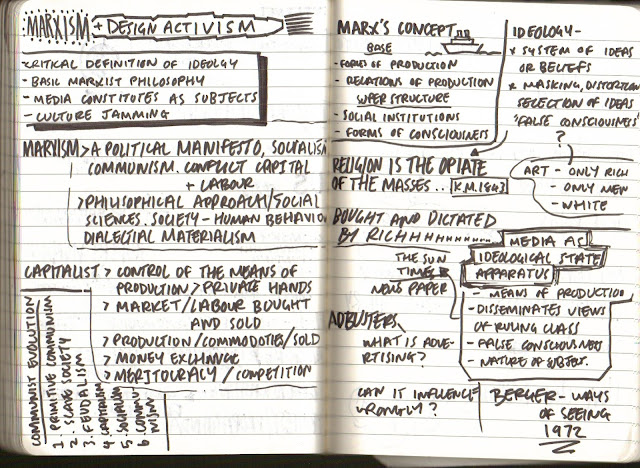 MARXISM + DESIGN ACTIVISM
-CRITICAL DEFINITION OF IDEOLGY
- BASIC MARXIST PHILOSOPHY
- MEDIA CONSTITUTES AS SUBJECTS
- CULTURE JAMMING
MARXISM > A POLITICAL MANIFESTO, SOCIALISM
COMMUNISM. CONFLICT CAPITAL
+ LABOUR
> PHILISOPHICAL APPROACH/SOCIAL
SCIENCES. SOCIETY - HUMAN BEHAVIOUR
DIALECTIAL MATERIALISM
CAPITALIST > CONTROL OF THE MEANS OF
PRODUCTION > PRIVATE HANDS
> MARKET/LABOUR BOUGHT
AND SOLD
> PRODUCTION/COMMODOTIES/SOLD
> MONEY EXCHANGE
> MERITOCRACY / COMPETITION
COMMUNIST EVOLUTION
1. PRIMITIVE COMMUNISM
2. SLAVE SOCIETY
3. FEUDALISM
4 CAPITALISM
5. SOCIALISM
6 COMMUNISM
MARX'S CONCEPT
BASE
- FORMS OF PRODUCTION
- RELATIONS OF PRODUCTION
SUPER STRUCTURE
- SOCIAL INSTITUTIONS
- FORMS OF CONSCIOUSNESS
IDEOLOGY-
* SYSTEM OF IDEAS
OR BELIEFS
* MASKING, DISTORTION
SELECTION OF IDEAS
'FALSE CONSCIOUSNESS'
?
ART - ONLY RICH
- ONLY MEN
- WHITE
RELIGION IS THE OPIATE
OF THE MASSES.. K.M.1843
BOUGHT AND DICTATED
BY RICHHHHHHH........
THE SUN
TIMES
NEWS PAPER
MEDIA AS
IDEOLOGICAL STATE
APPARATUS
- MEANS OF PRODUCTION
- DISSEMINATES VIEWS
OF RULING CLASS
- FALSE CONSCIOUSNESS
- NATURE OF SUBJECT.
ADBUSTERS
WHAT IS ADVE-
RTISING?
CAN IT INFLUENCE
WRONGLY?
BERGER - WAYS
OF SEEING
1972